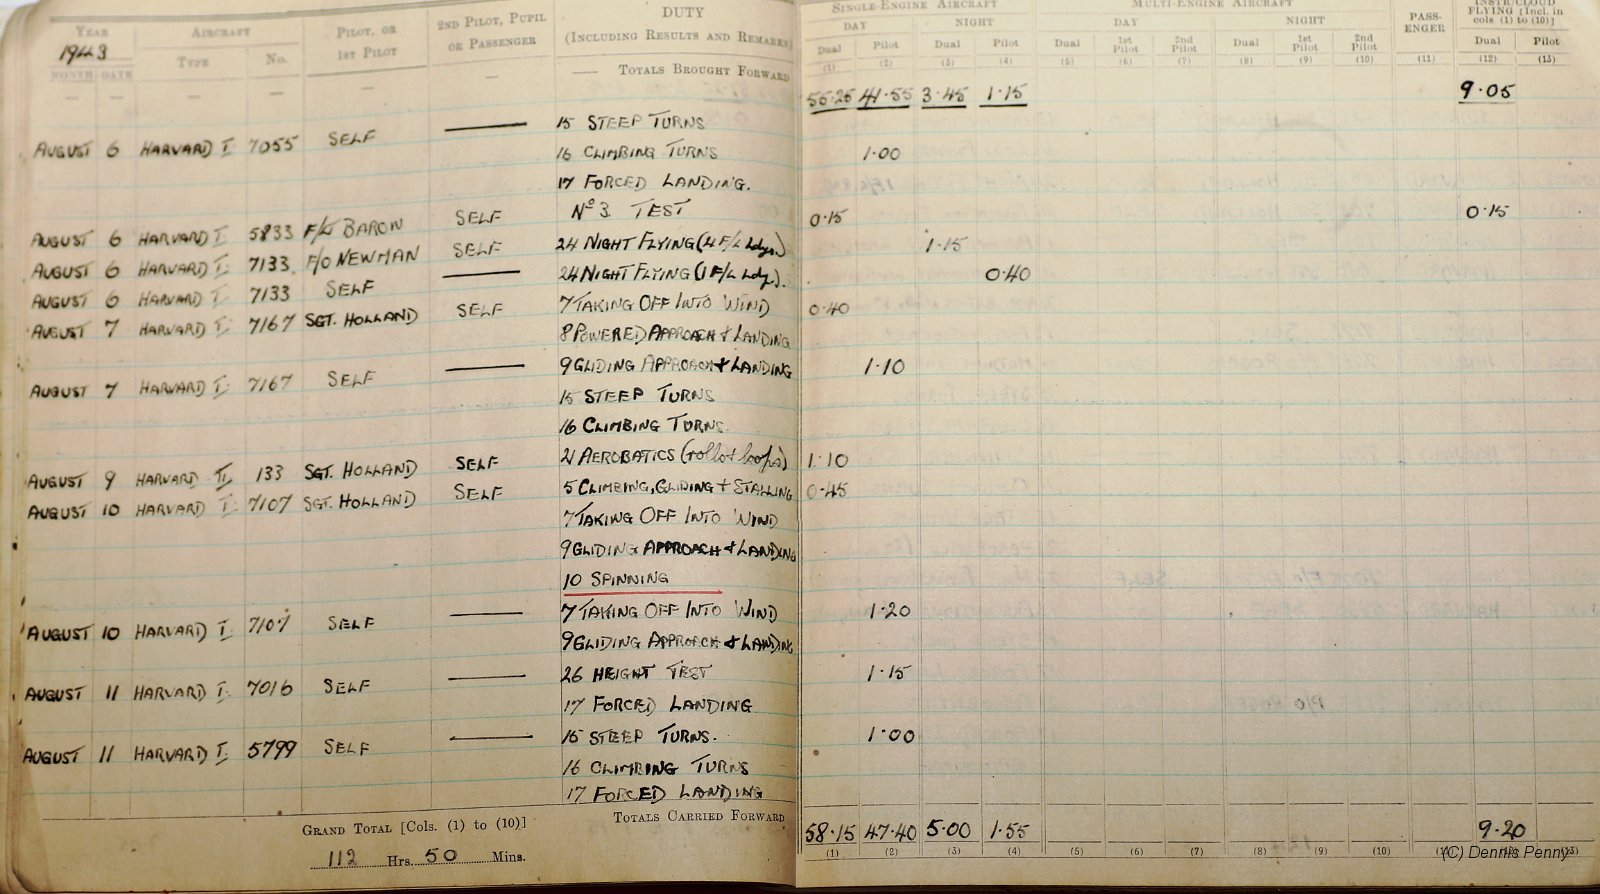 YEAR AIRCRAFT PILOT, OR 1ST PILOT 2ND PILOT, PUPIL OR PASSENGER DUTY (INCLUDING RESULTS AND REMARKS) SINGLE-ENGINE AIRCRAFT MULTI-ENGINE AIRCRAFT PASS-ENGER INSTR/CLOUD FLYING [Incl. in cols. (1) to (10)]
1943 DAY NIGHT DAY NIGHT
MONTH DATE TYPE No. Dual Pilot Dual Pilot Dual 1st Pilot 2nd Pilot Dual 1st Pilot 2nd Pilot Dual Pilot
(1) (2) (3) (4) (5) (6) (7) (8) (9) (10) (11) (12) (13)
— — — — — — TOTALS BROUGHT FORWARD 55·25 41·55 3·45 1·15 9·05
15 STEEP TURNS
AUGUST 6 HARVARD I 7055 SELF — 16 CLIMBING TURNS 1·00
17 FORCED LANDING.
AUGUST 6 HARVARD I 5833 F/LT BARON SELF No 3 TEST 0·15 0·15
AUGUST 6 HARVARD I 7133 F/O NEWMAN SELF 24 NIGHT FLYING (4 F/L Ldgs.) 1·15
AUGUST 6 HARVARD I 7133 SELF — 24 NIGHT FLYING (1 F/L Ldg.) 0·40
AUGUST 7 HARVARD II 7167 SGT. HOLLAND SELF 7 TAKING OFF INTO WIND 0·40
8 POWERED APPROACH & LANDING
AUGUST 7 HARVARD I 7167 SELF — 9 GLIDING APPROACH & LANDING 1·10
15 STEEP TURNS
16 CLIMBING TURNS
AUGUST 9 HARVARD II 133 SGT. HOLLAND SELF 21 AEROBATICS (rolls & loops) 1·10
AUGUST 10 HARVARD I 7107 SGT. HOLLAND SELF 5 CLIMBING, GLIDING + STALLING 0·45
7 TAKING OFF INTO WIND
9 GLIDING APPROACH & LANDING
10 SPINNING
AUGUST 10 HARVARD I 7107 SELF — 7 TAKING OFF INTO WIND 1·20
9 GLIDING APPROACH & LANDING
AUGUST 11 HARVARD I 7016 SELF — 26 HEIGHT TEST 1·15
17 FORCED LANDING
AUGUST 11 HARVARD I 5799 SELF — 15 STEEP TURNS. 1·00
16 CLIMBING TURNS
17 FORCED LANDING
GRAND TOTAL [Cols. (1) to (10)] TOTALS CARRIED FORWARD 58·15 47·40 5·00 1·55 9·20
112 Hrs. 50 Mins. (1) (2) (3) (4) (5) (6) (7) (8) (9) (10) (11) (12) (13)
(C) Dennis Penny